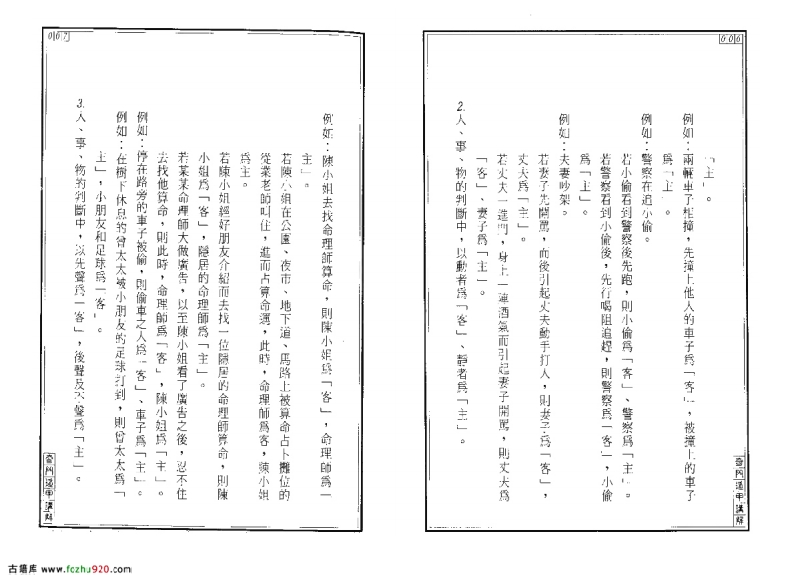 006
「主」。
例如：兩輛車子相撞，先撞上他人的車子為「客」，被撞上的車子
為「主」。
例如：警察在追小偷。
若小偷看到警察後先跑，則小偷為「客」、警察為「主」。
若警察看到小偷後，先行喝阻追趕，則警察為「客」，小偷
為「主」。
例如：夫妻吵架。
若妻子先開罵，而後引起丈夫動手打人，則妻子為「客」，
若丈夫一進門，身上一陣酒氣而引起妻子開罵，則丈夫為
「客」、妻子為「主」。
2.人、事、物的判斷中，以動者為「客」、靜者為「主」。
奇門遁甲講解
007
例如：陳小姐去找命理師算命，則陳小姐為「客」，命理師為「
主」。
若陳小姐在公園、夜市、地下道、馬路上被算命占卜攤位的
從業老師叫住，進而占算命運，此時，命理師為客，陳小姐
為主。
若陳小姐經好朋友介紹而去找一位隱居的命理師算命，則陳
小姐為「客」，隱居的命理師為「主」。
若某某命理師大做廣告，以至陳小姐看了廣告之後，忍不住
去找他算命，則此時，命理師為「客」，陳小姐為「主」。
例如：停在路旁的車子被偷，則偷車之人為「客」、車子為「主」。
例如：在樹下休息的曾太太被小朋友的足球打到，則曾太太為「
主」，小朋友和足球為「客」。
3.人、事、物的判斷中，以先聲為「客」，後聲及不聲為「主」。
奇門遁甲講解
古籍库 www.fczhu920.com